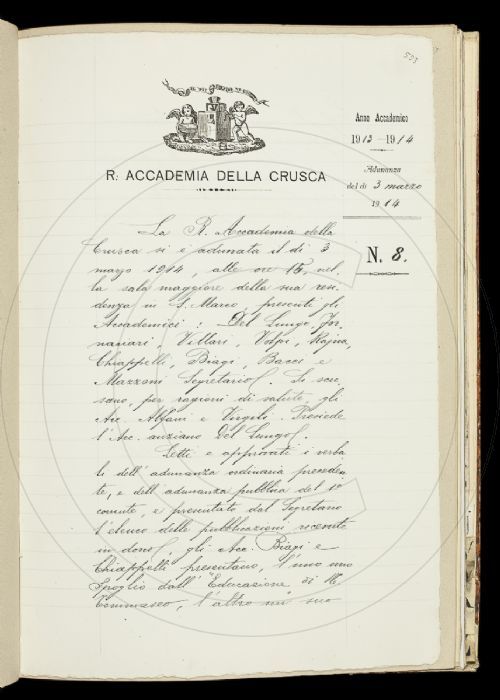 533
Anno Accademico
1913-1914
Adunanza
del dì 3 marzo
1914
R. ACCADEMIA DELLA CRUSCA
N. 8.
La R. Accademia della
Crusca si è adunata il dì 3
marzo 1914, alle ore 15, nel-
la sala maggiore della sua resi-
denza in S. Marco, presenti gli
Accademici: Del Lungo, Tor-
nanari, Villari, Volpi, Rajna,
Chiappelli, Biagi, Bacci e
Mazzoni Segretario. Si scu-
sano, per ragioni di salute, gli
Acc. Alfani e Vitelli. Presiede
l'Acc. anziano Del Lungo.
Letti e approvati i verba
li dell'adunanza ordinaria preceden-
te, e dell'adunanza pubblica del 1º
corrente, e presentato dal Segretario
l'elenco delle pubblicazioni ricevute
in dono, gli Acc. Biagi e
Chiappelli presentano, l'uno uno
spoglio dall'"Educazione" di N.
Tommaseo, l'altro un suo